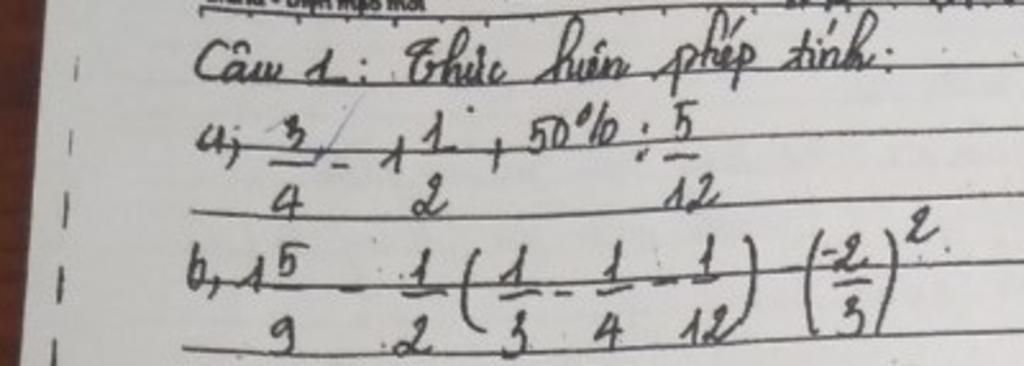 Câu 1: Thực hiện phép tính:
a, 3/4 - 1 1/2 + 50% : 5/12
b, 1 5/9 - 1/2 (1/3 - 1/4 - 1/12) - (-2/3)^2